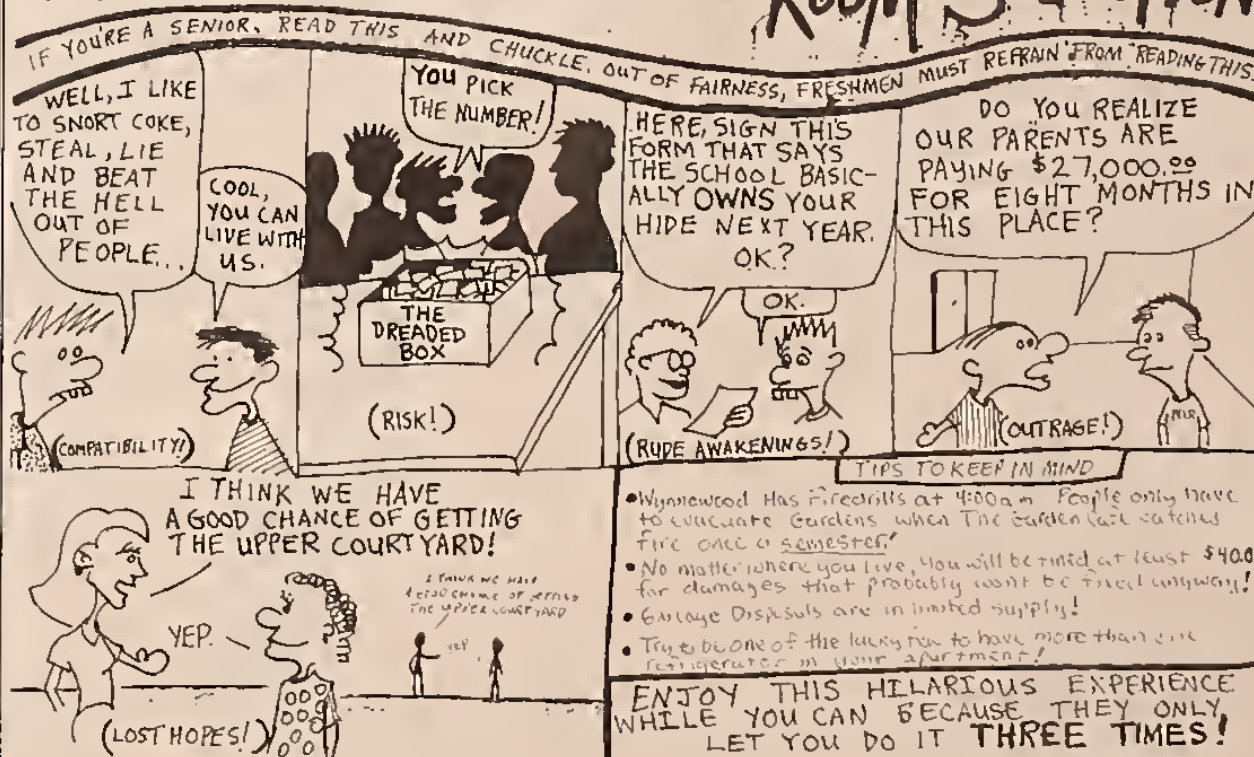 IF YOU'RE A SENIOR, READ THIS AND CHUCKLE. OUT OF FAIRNESS, FRESHMEN MUST REFRAIN FROM READING THIS
WELL, I LIKE
TO SNORT COKE,
STEAL, LIE
AND BEAT
THE HELL
OUT OF
PEOPLE...
COOL,
YOU CAN
LIVE WITH
US.
(COMPATIBILITY!)
YOU PICK
THE NUMBER!
THE
DREADED
BOX
(RISK!)
HERE, SIGN THIS
FORM THAT SAYS
THE SCHOOL BASIC-
ALLY OWNS YOUR
HIDE NEXT YEAR.
O.K.?
OK.
(RUDE AWAKENINGS!)
DO YOU REALIZE
OUR PARENTS ARE
PAYING $27,000.00
FOR EIGHT MONTHS IN
THIS PLACE?
(OUTRAGE!)
I THINK WE HAVE
A GOOD CHANCE OF GETTING
THE UPPER COURTYARD!
YEP.
I THINK WE HAVE
A GOOD CHANCE OF GETTING
THE UPPER COURTYARD
YEP
(LOST HOPES!)
TIPS TO KEEP IN MIND
• Wynnewood Has Firedrills at 4:00am People only have
to evacuate Gardens when The Garden catches
fire once a semester!
• No matter where you live, you will be at least $40.0
for damages that probably wont be fixed anyway!!
• Disposals are in limited supply!
• Try to be one of the lucky few to have more than one
refrigerator in your apartment!
ENJOY THIS HILARIOUS EXPERIENCE
WHILE YOU CAN BECAUSE THEY ONLY
LET YOU DO IT THREE TIMES!